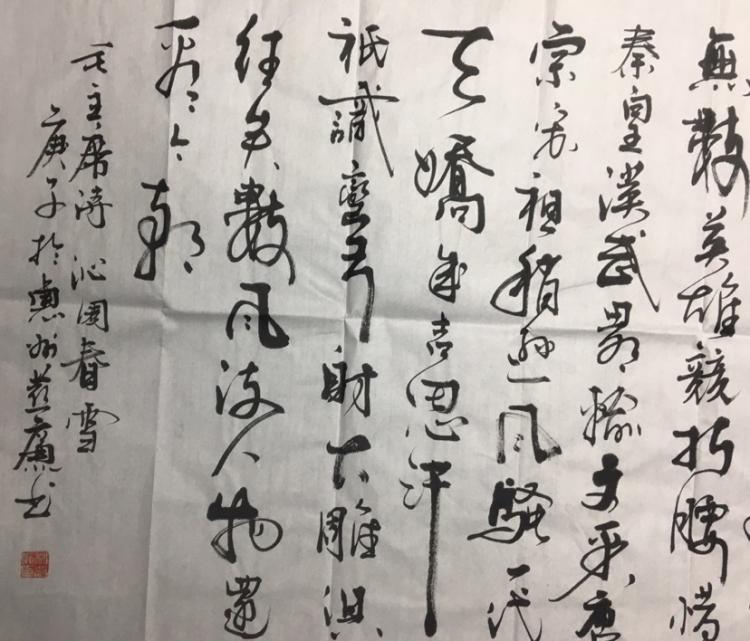 無數英雄競折腰惜
秦皇漢武略輸文采唐
宗宋祖稍遜風騷一代
天驕成吉思汗
祇識彎弓射大雕俱
往矣數風流人物還
看今朝
毛主席詩 沁園春雪
庚子於惠州